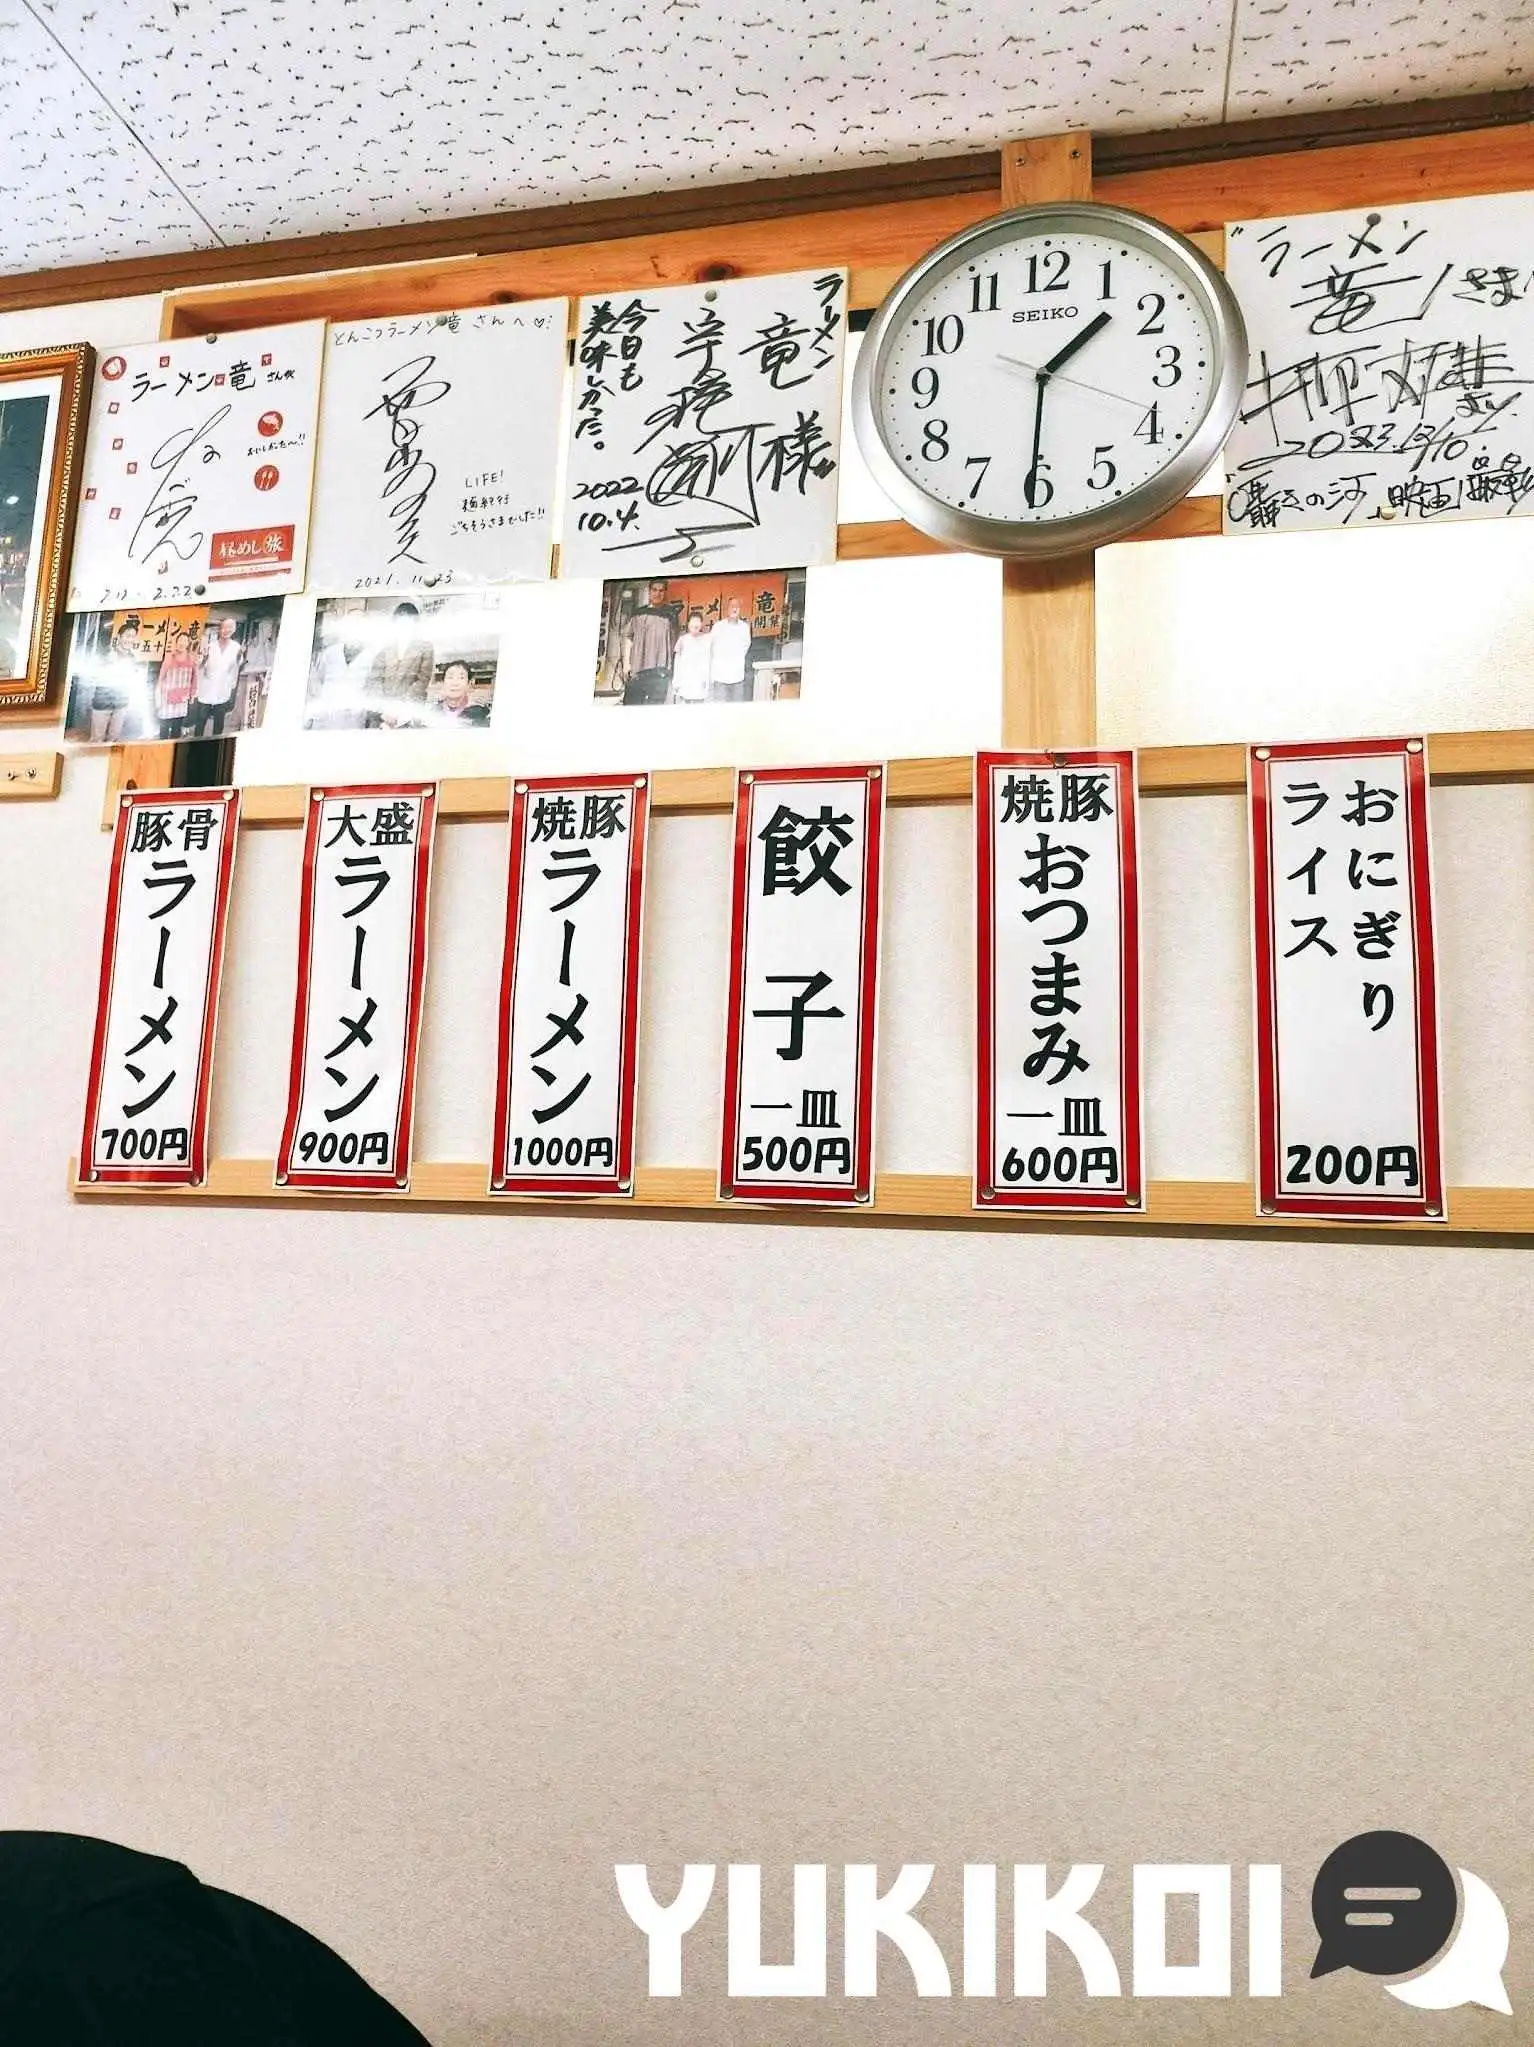 ラーメン竜さん江
おいしかた〜!!
昼めし旅
とんこつラーメン竜さんへ♡
LIFE!
ごちそうさまでした!!
2021.11.23
ラーメン
竜
様
今日も
美味しかった。
2022
10.4.
SEIKO
12
1
2
3
4
5
6
7
8
9
10
11
ラーメン
竜さま
映画撮影
ラーメン竜
豚骨ラーメン
700円
大盛ラーメン
900円
焼豚ラーメン
1000円
餃子一皿
500円
焼豚おつまみ一皿
600円
おにぎり
ライス
200円
YUKIKOI